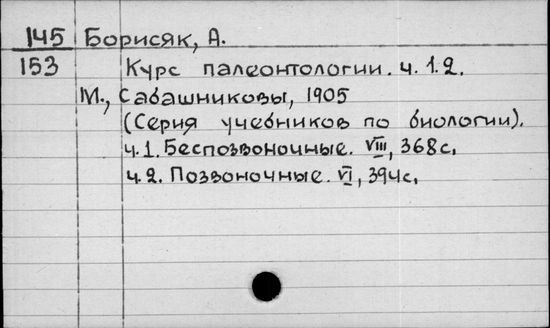 145 Борисяк, А.
153 Курс палеонтологии. ч. 1. 2.
М., Сабашниковы, 1905
(Серия учебников по биологии).
ч. 1. Беспозвоночные. VIII, 368 с.
ч. 2. Позвоночные. VI, 394 с.